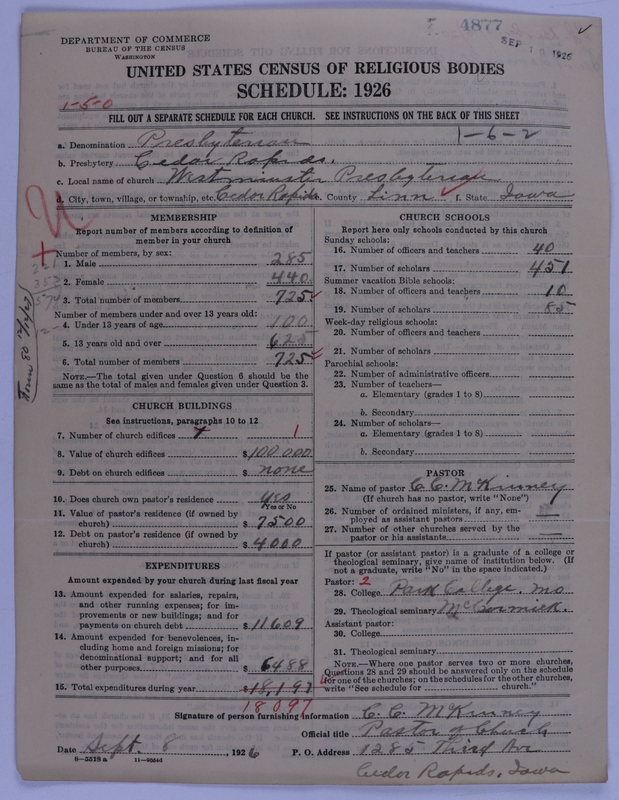 4877
SEP 10 1926
DEPARTMENT OF COMMERCE
BUREAU OF THE CENSUS
WASHINGTON
UNITED STATES CENSUS OF RELIGIOUS BODIES
SCHEDULE: 1926
1-5-0
FILL OUT A SEPARATE SCHEDULE FOR EACH CHURCH. SEE INSTRUCTIONS ON THE BACK OF THIS SHEET
1-6-2
a. Denomination Presbyterian
b. Presbytery Cedar Rapids.
c. Local name of church Westminster Presbyterian
d. City, town, village, or township, etc. Cedar Rapids e. County Linn f. State Iowa
MEMBERSHIP
Report number of members according to definition of
member in your church
Number of members, by sex:
1. Male 285
2. Female 440
3. Total number of members 725
Number of members under and over 13 years old:
4. Under 13 years of age 100
5. 13 years old and over 625
6. Total number of members 725
NOTE.—The total given under Question 6 should be the
same as the total of males and females given under Question 3.
CHURCH BUILDINGS
See instructions, paragraphs 10 to 12
7. Number of church edifices 1
8. Value of church edifices $100,000
9. Debt on church edifices $ none
10. Does church own pastor's residence yes
Yes or No
11. Value of pastor's residence (if owned by
church) $ 7500
12. Debt on pastor's residence (if owned by
church) $ 4000
EXPENDITURES
Amount expended by your church during last fiscal year
13. Amount expended for salaries, repairs,
and other running expenses; for im-
provements or new buildings; and for
payments on church debt $ 11609
14. Amount expended for benevolences, in-
cluding home and foreign missions; for
denominational support; and for all
other purposes $ 6488
15. Total expenditures during year $ 18,197
18097
CHURCH SCHOOLS
Report here only schools conducted by this church
Sunday schools:
16. Number of officers and teachers 40
17. Number of scholars 451
Summer vacation Bible schools:
18. Number of officers and teachers 10
19. Number of scholars 85
Week-day religious schools:
20. Number of officers and teachers
21. Number of scholars
Parochial schools:
22. Number of administrative officers
23. Number of teachers—
a. Elementary (grades 1 to 8)
b. Secondary
24. Number of scholars—
a. Elementary (grades 1 to 8)
b. Secondary
PASTOR
25. Name of pastor C. C. McKinney
(If church has no pastor, write "None")
26. Number of ordained ministers, if any, em-
ployed as assistant pastors —
27. Number of other churches served by the
pastor or his assistants —
If pastor (or assistant pastor) is a graduate of a college or
theological seminary, give name of institution below. (If
not a graduate, write "No" in the space indicated.)
Pastor: 2
28. College Park College, Mo
29. Theological seminary McCormick.
Assistant pastor:
30. College
31. Theological seminary
NOTE.—Where one pastor serves two or more churches,
Questions 28 and 29 should be answered only on the schedule
for one of the churches; on the schedules for the other churches,
write "See schedule for church."
Signature of person furnishing information C. C. McKinney
Official title Pastor of Church
Date Sept. 8, 1926 P. O. Address 1285 Third Ave
8—5518 a 11—9054d
Cedar Rapids, Iowa